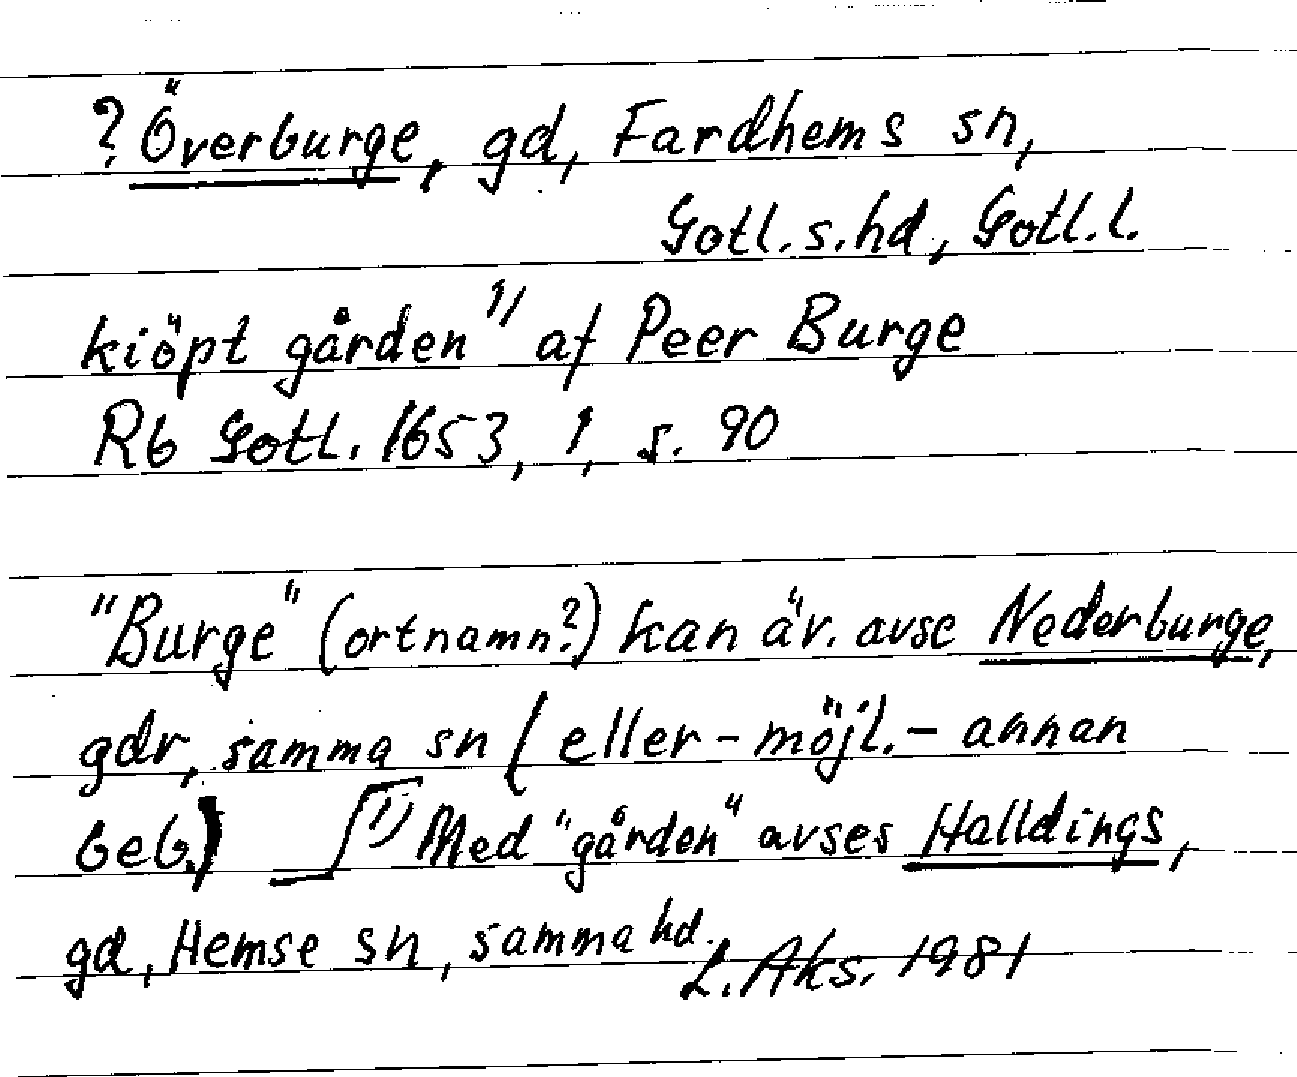 ? Överburge, gd, Fardhems sn,
Gotl. s. hd, Gotl. l.
kiöpt gården 1) af Peer Burge
Rb Gotl. 1653, 1, s. 90
"Burge" (ortnamn?) kan äv. avse Nederburge,
gdr, samma sn (eller - möjl. - annan
beb.) 1) Med "gården" avses Halldings,
gd, Hemse sn, samma hd.
L. Aks. 1981